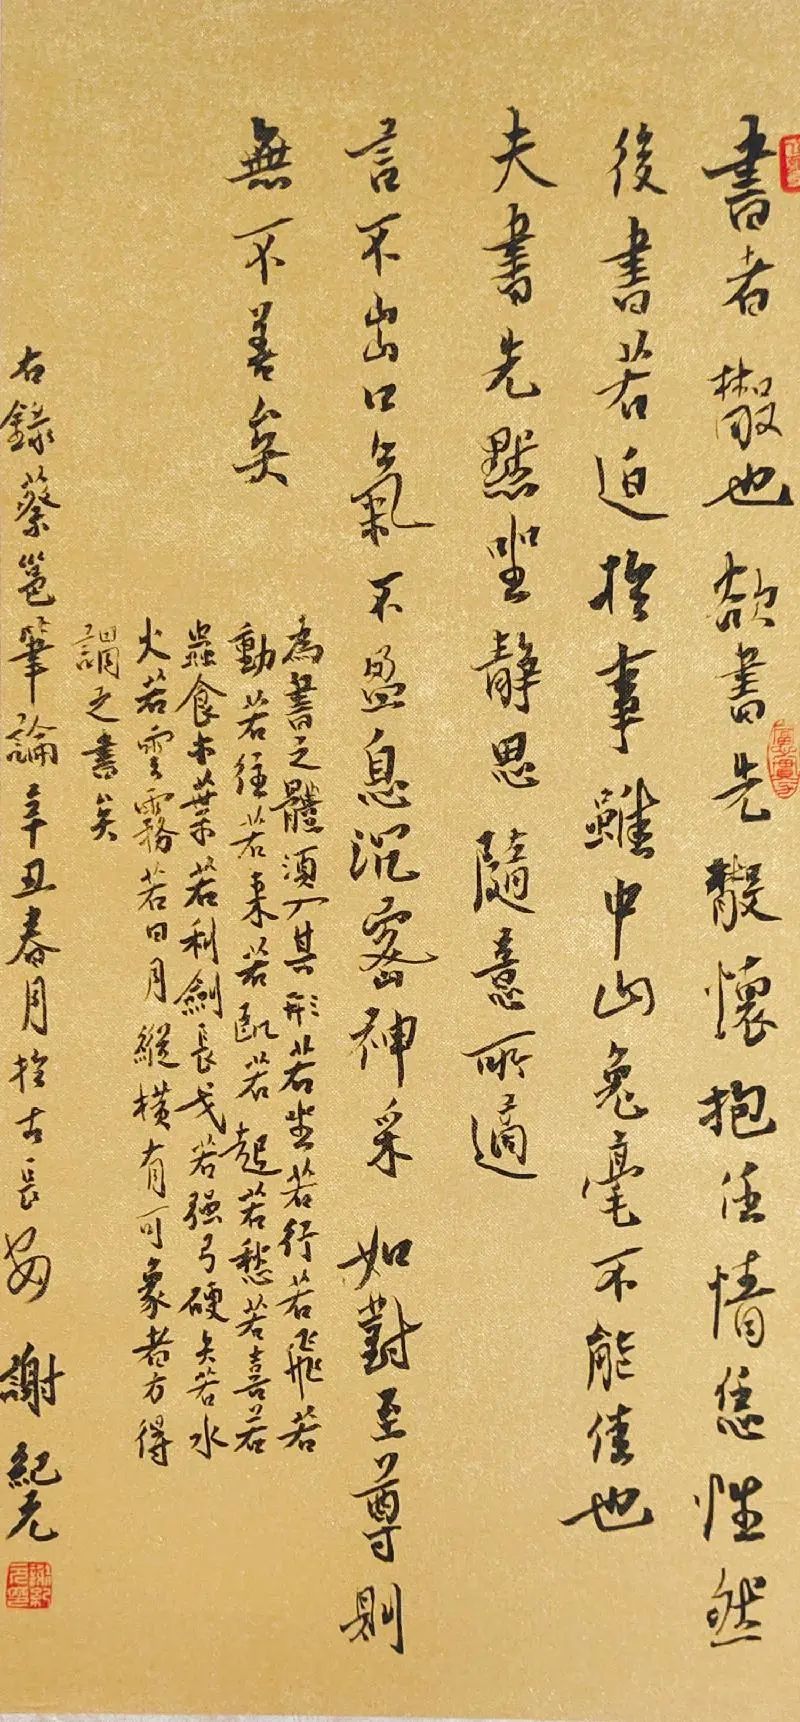 書者散也欲書先散懷抱任情恣性然
後書若迫於事雖中山兔毫不能佳也
夫書先默坐靜思隨意所適
言不出口氣不盈息沉密神采如對至尊則
無不善矣
為書之體須入其形若坐若行若飛若
動若往若来若臥若起若愁若喜若
蟲食木葉若利劍長戈若强弓硬矢若水
火若雲霧若日月縱橫有可象者方得
謂之書矣
右錄蔡邕筆論辛丑春月於古長安謝紀元